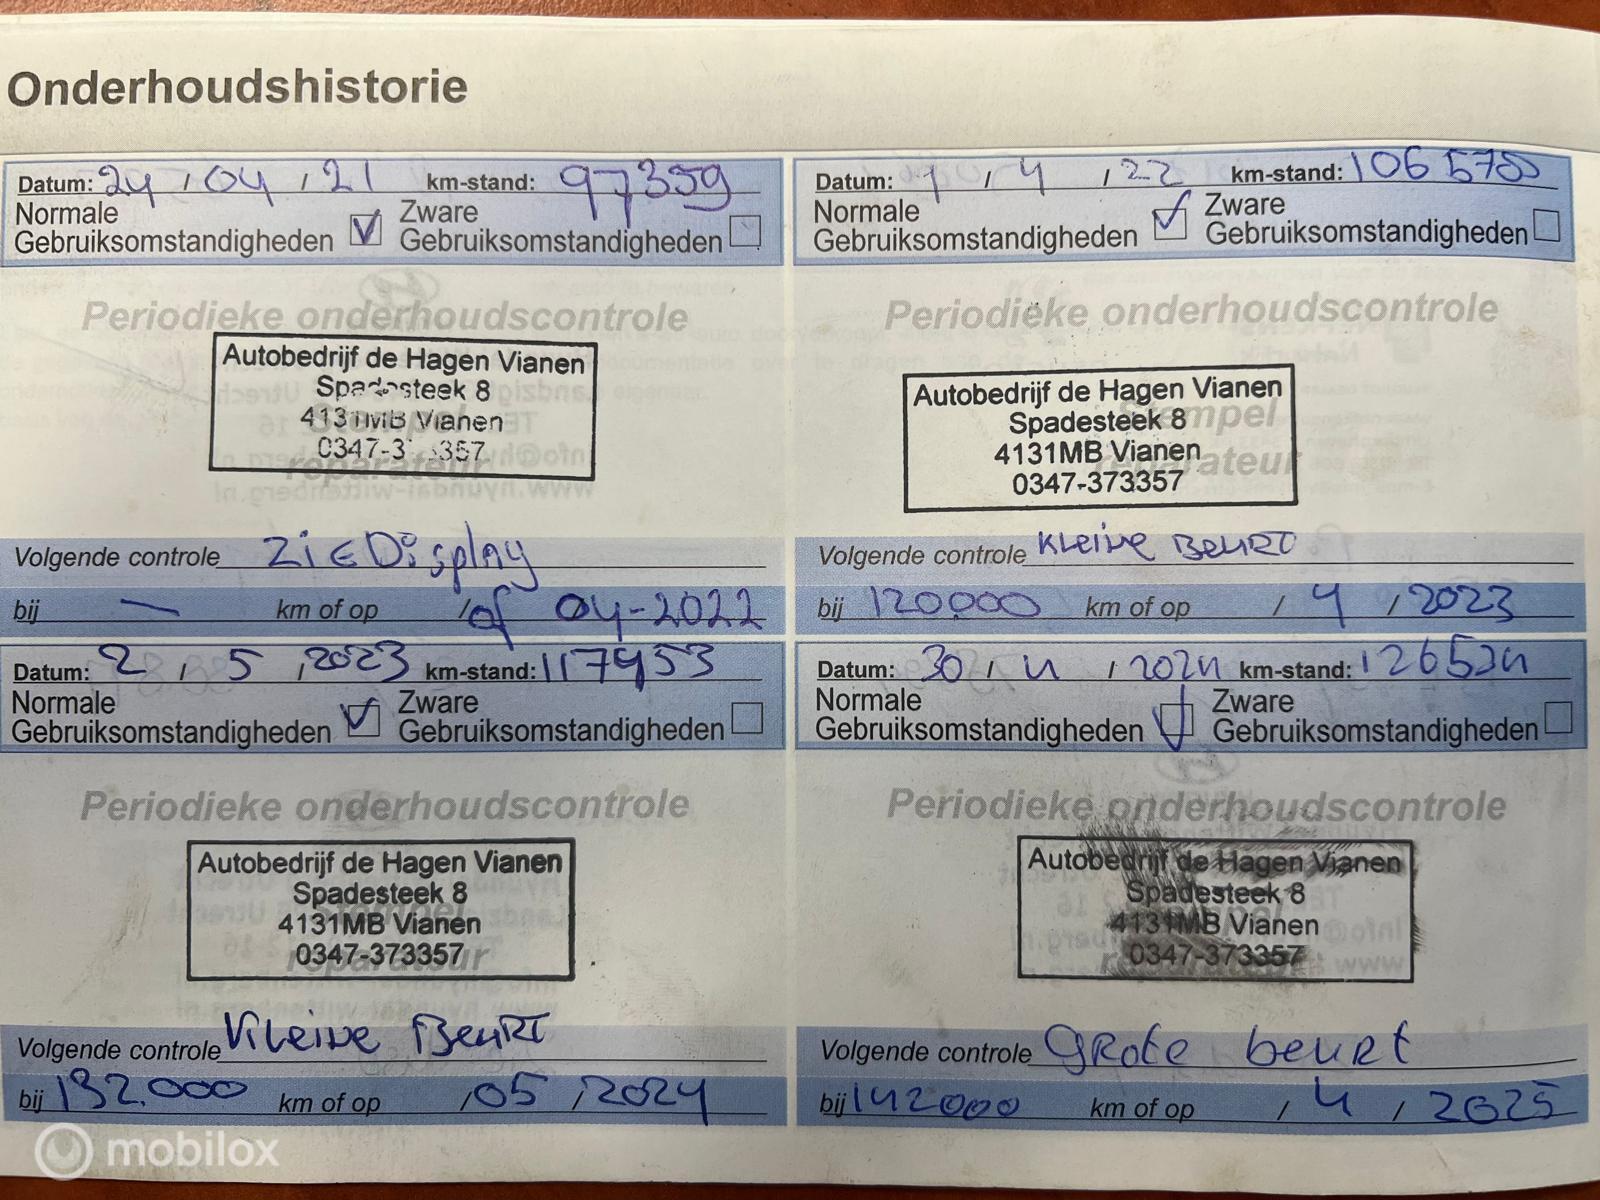 Onderhoudshistorie
Datum: 24 / 04 / 21 km-stand: 97359
Normale Gebruiksomstandigheden Zware Gebruiksomstandigheden
Periodieke onderhoudscontrole
Autobedrijf de Hagen Vianen
Spadesteek 8
4131MB Vianen
0347-3 357
Stempel
reparateur
Volgende controle ZIE Display
bij — km of op / of 04-2022
Datum: 1 / 4 / 22 km-stand: 106
Normale Gebruiksomstandigheden Zware Gebruiksomstandigheden
Periodieke onderhoudscontrole
Autobedrijf de Hagen Vianen
Spadesteek 8
4131MB Vianen
0347-373357
Stempel
reparateur
Volgende controle Kleine Beurt
bij 120.000 km of op / 4 / 2023
Datum: 2 / 5 / 2023 km-stand: 117453
Normale Gebruiksomstandigheden Zware Gebruiksomstandigheden
Periodieke onderhoudscontrole
Autobedrijf de Hagen Vianen
Spadesteek 8
4131MB Vianen
0347-373357
Stempel
reparateur
Volgende controle Kleine Beurt
bij 132.000 km of op / 05 / 2024
Datum: 30 / 4 / 2024 km-stand: 126524
Normale Gebruiksomstandigheden Zware Gebruiksomstandigheden
Periodieke onderhoudscontrole
Autobedrijf de Hagen Vianen
Spadesteek 8
4131MB Vianen
0347-373357
Stempel
reparateur
Volgende controle Grote beurt
bij 142000 km of op / 4 / 2025
mobilox